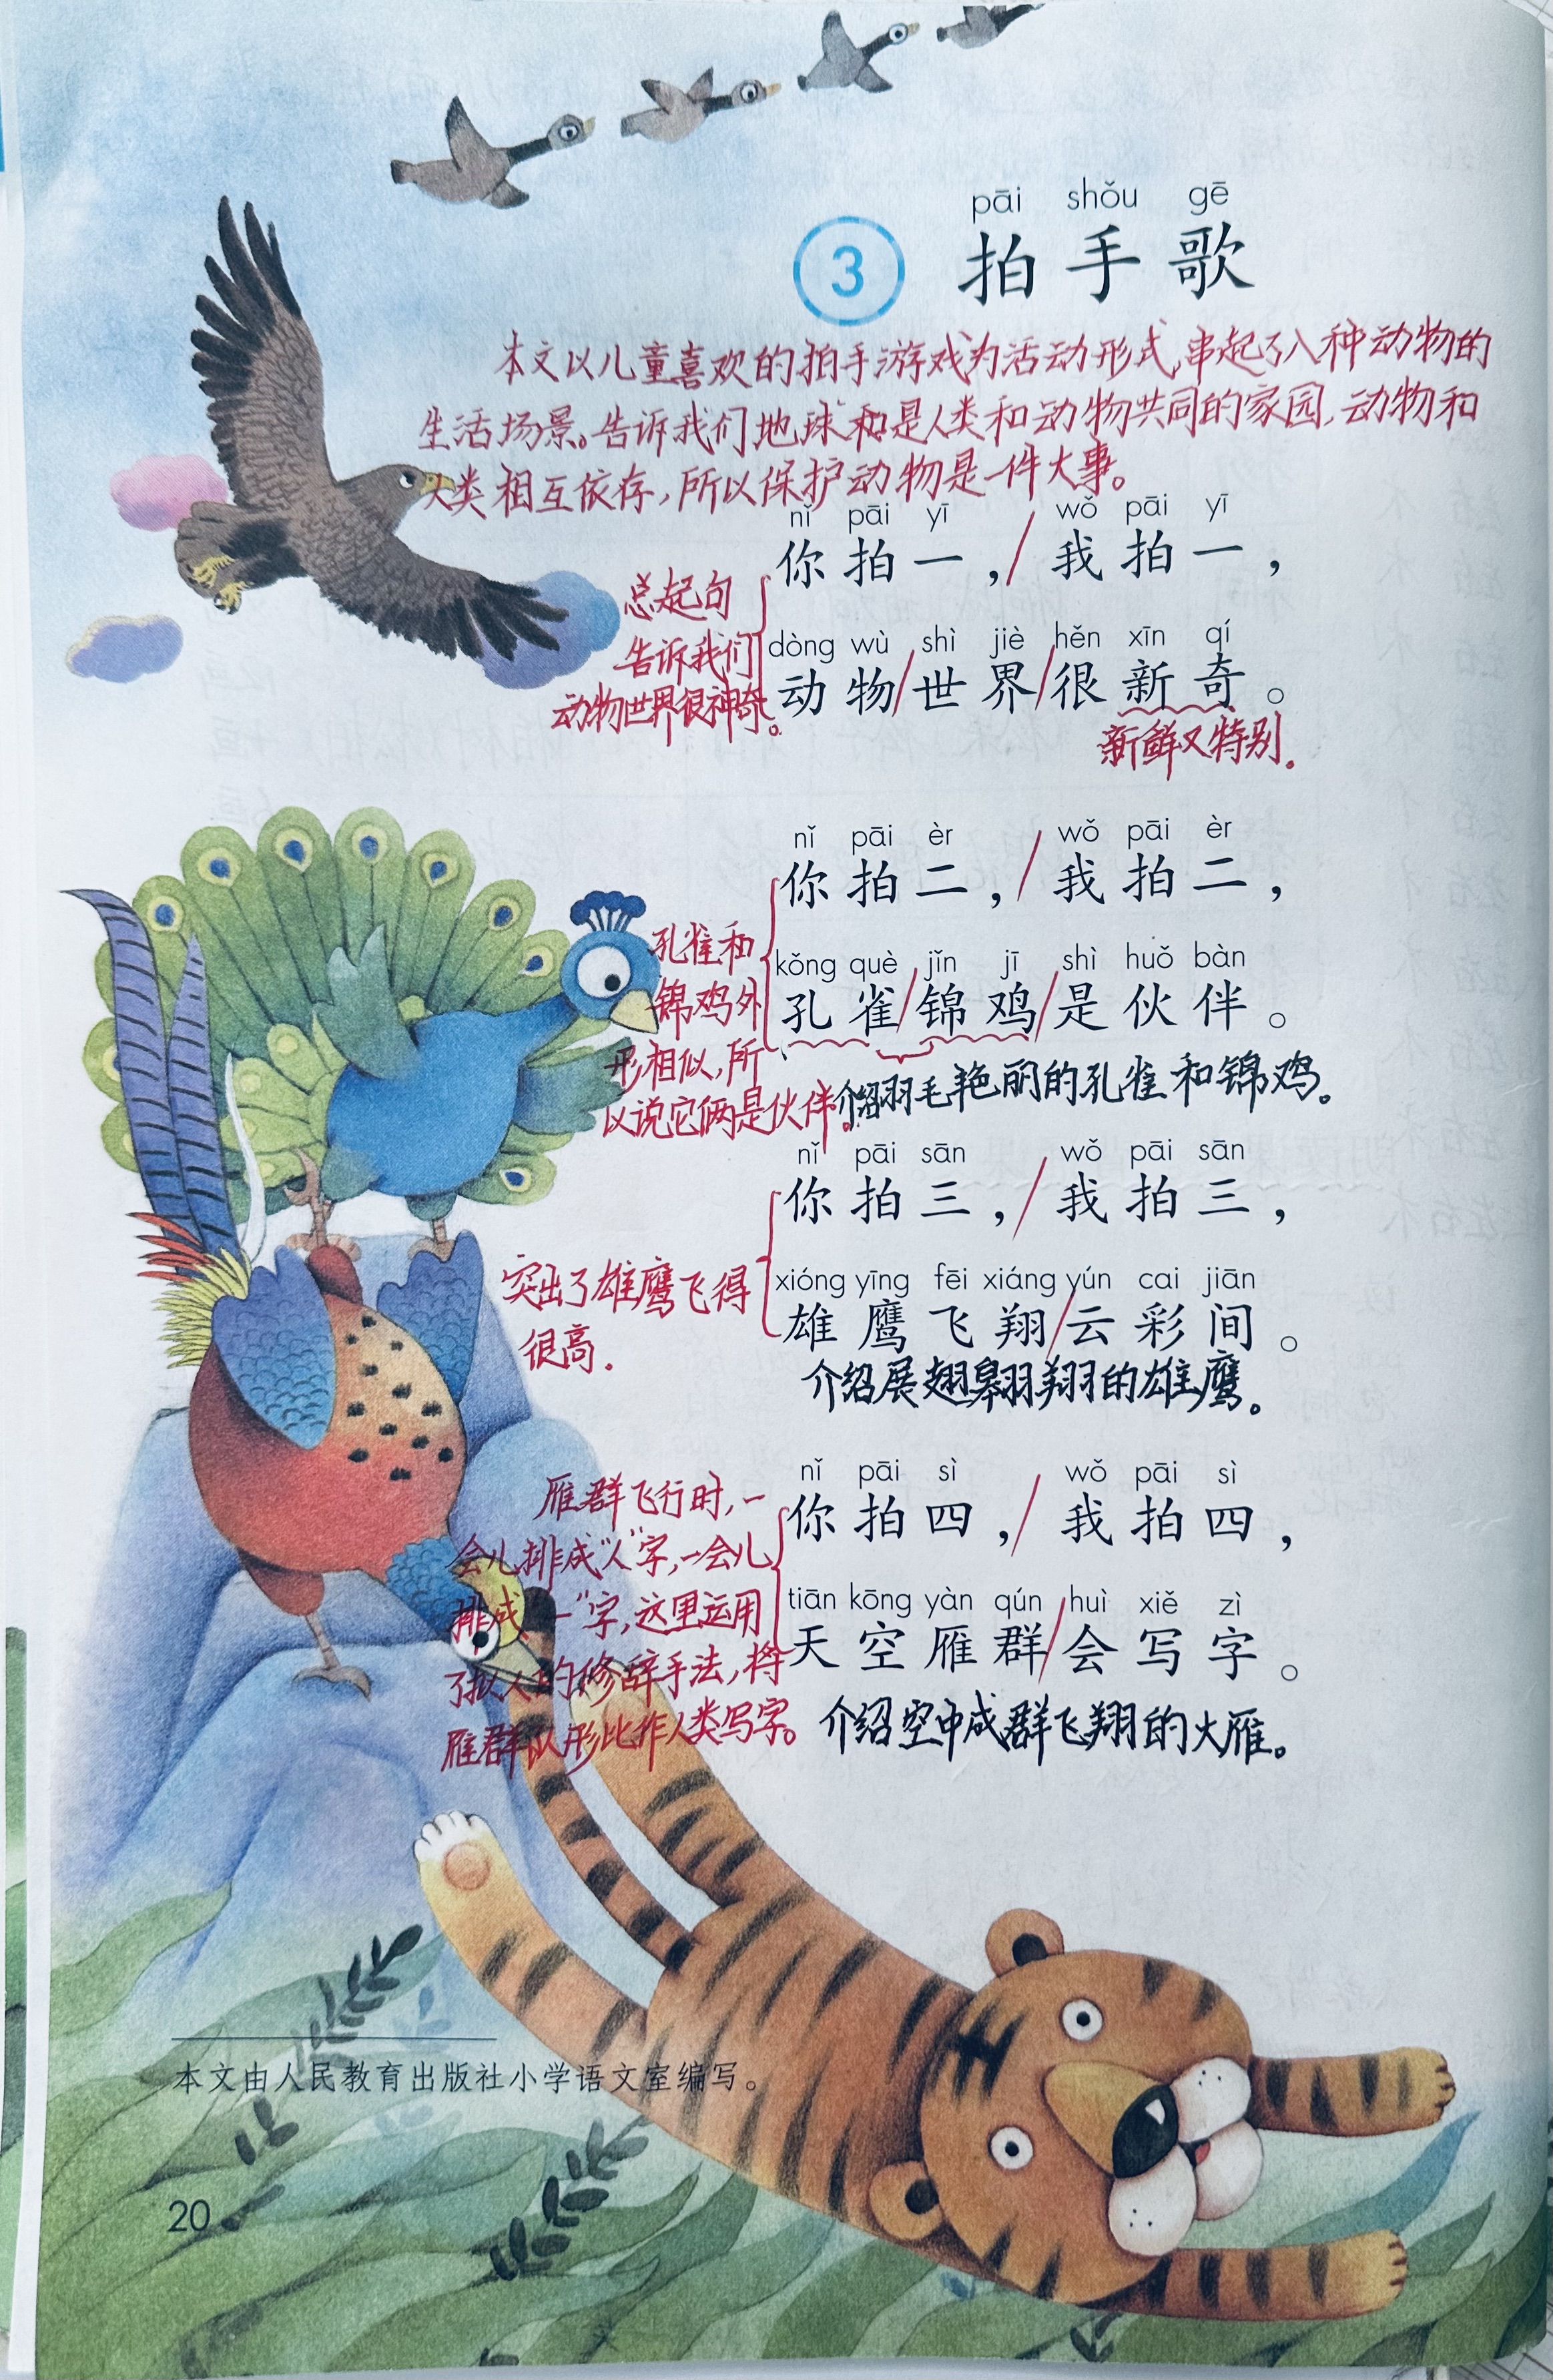 pāi shǒu gē
3 拍手歌
本文以儿童喜欢的拍手游戏为活动形式,串起了八种动物的
生活场景。告诉我们地球和是人类和动物共同的家园,动物和
人类相互依存,所以保护动物是一件大事。
nǐ pāi yī wǒ pāi yī
你拍一,/我拍一,
总起句
告诉我们
动物世界很神奇。
dòng wù shì jiè hěn xīn qí
动物/世界/很新奇。
新鲜又特别.
nǐ pāi èr wǒ pāi èr
你拍二,/我拍二,
kǒng què jǐn jī shì huǒ bàn
孔雀/锦鸡/是伙伴。
孔雀和
锦鸡外
形相似,所
以说它俩是伙伴。
介绍羽毛艳丽的孔雀和锦鸡。
nǐ pāi sān wǒ pāi sān
你拍三,/我拍三,
xióng yīng fēi xiáng yún cai jiān
雄鹰飞翔/云彩间。
突出了雄鹰飞得
很高.
介绍展翅翱翔的雄鹰。
nǐ pāi sì wǒ pāi sì
你拍四,/我拍四,
tiān kōng yàn qún huì xiě zì
天空雁群/会写字。
雁群飞行时,一
会儿排成“人”字,一会儿
排成“一”字,这里运用
了拟人的修辞手法,将
雁群队形比作人类写字。
介绍空中成群飞翔的大雁。
本文由人民教育出版社小学语文室编写。
20